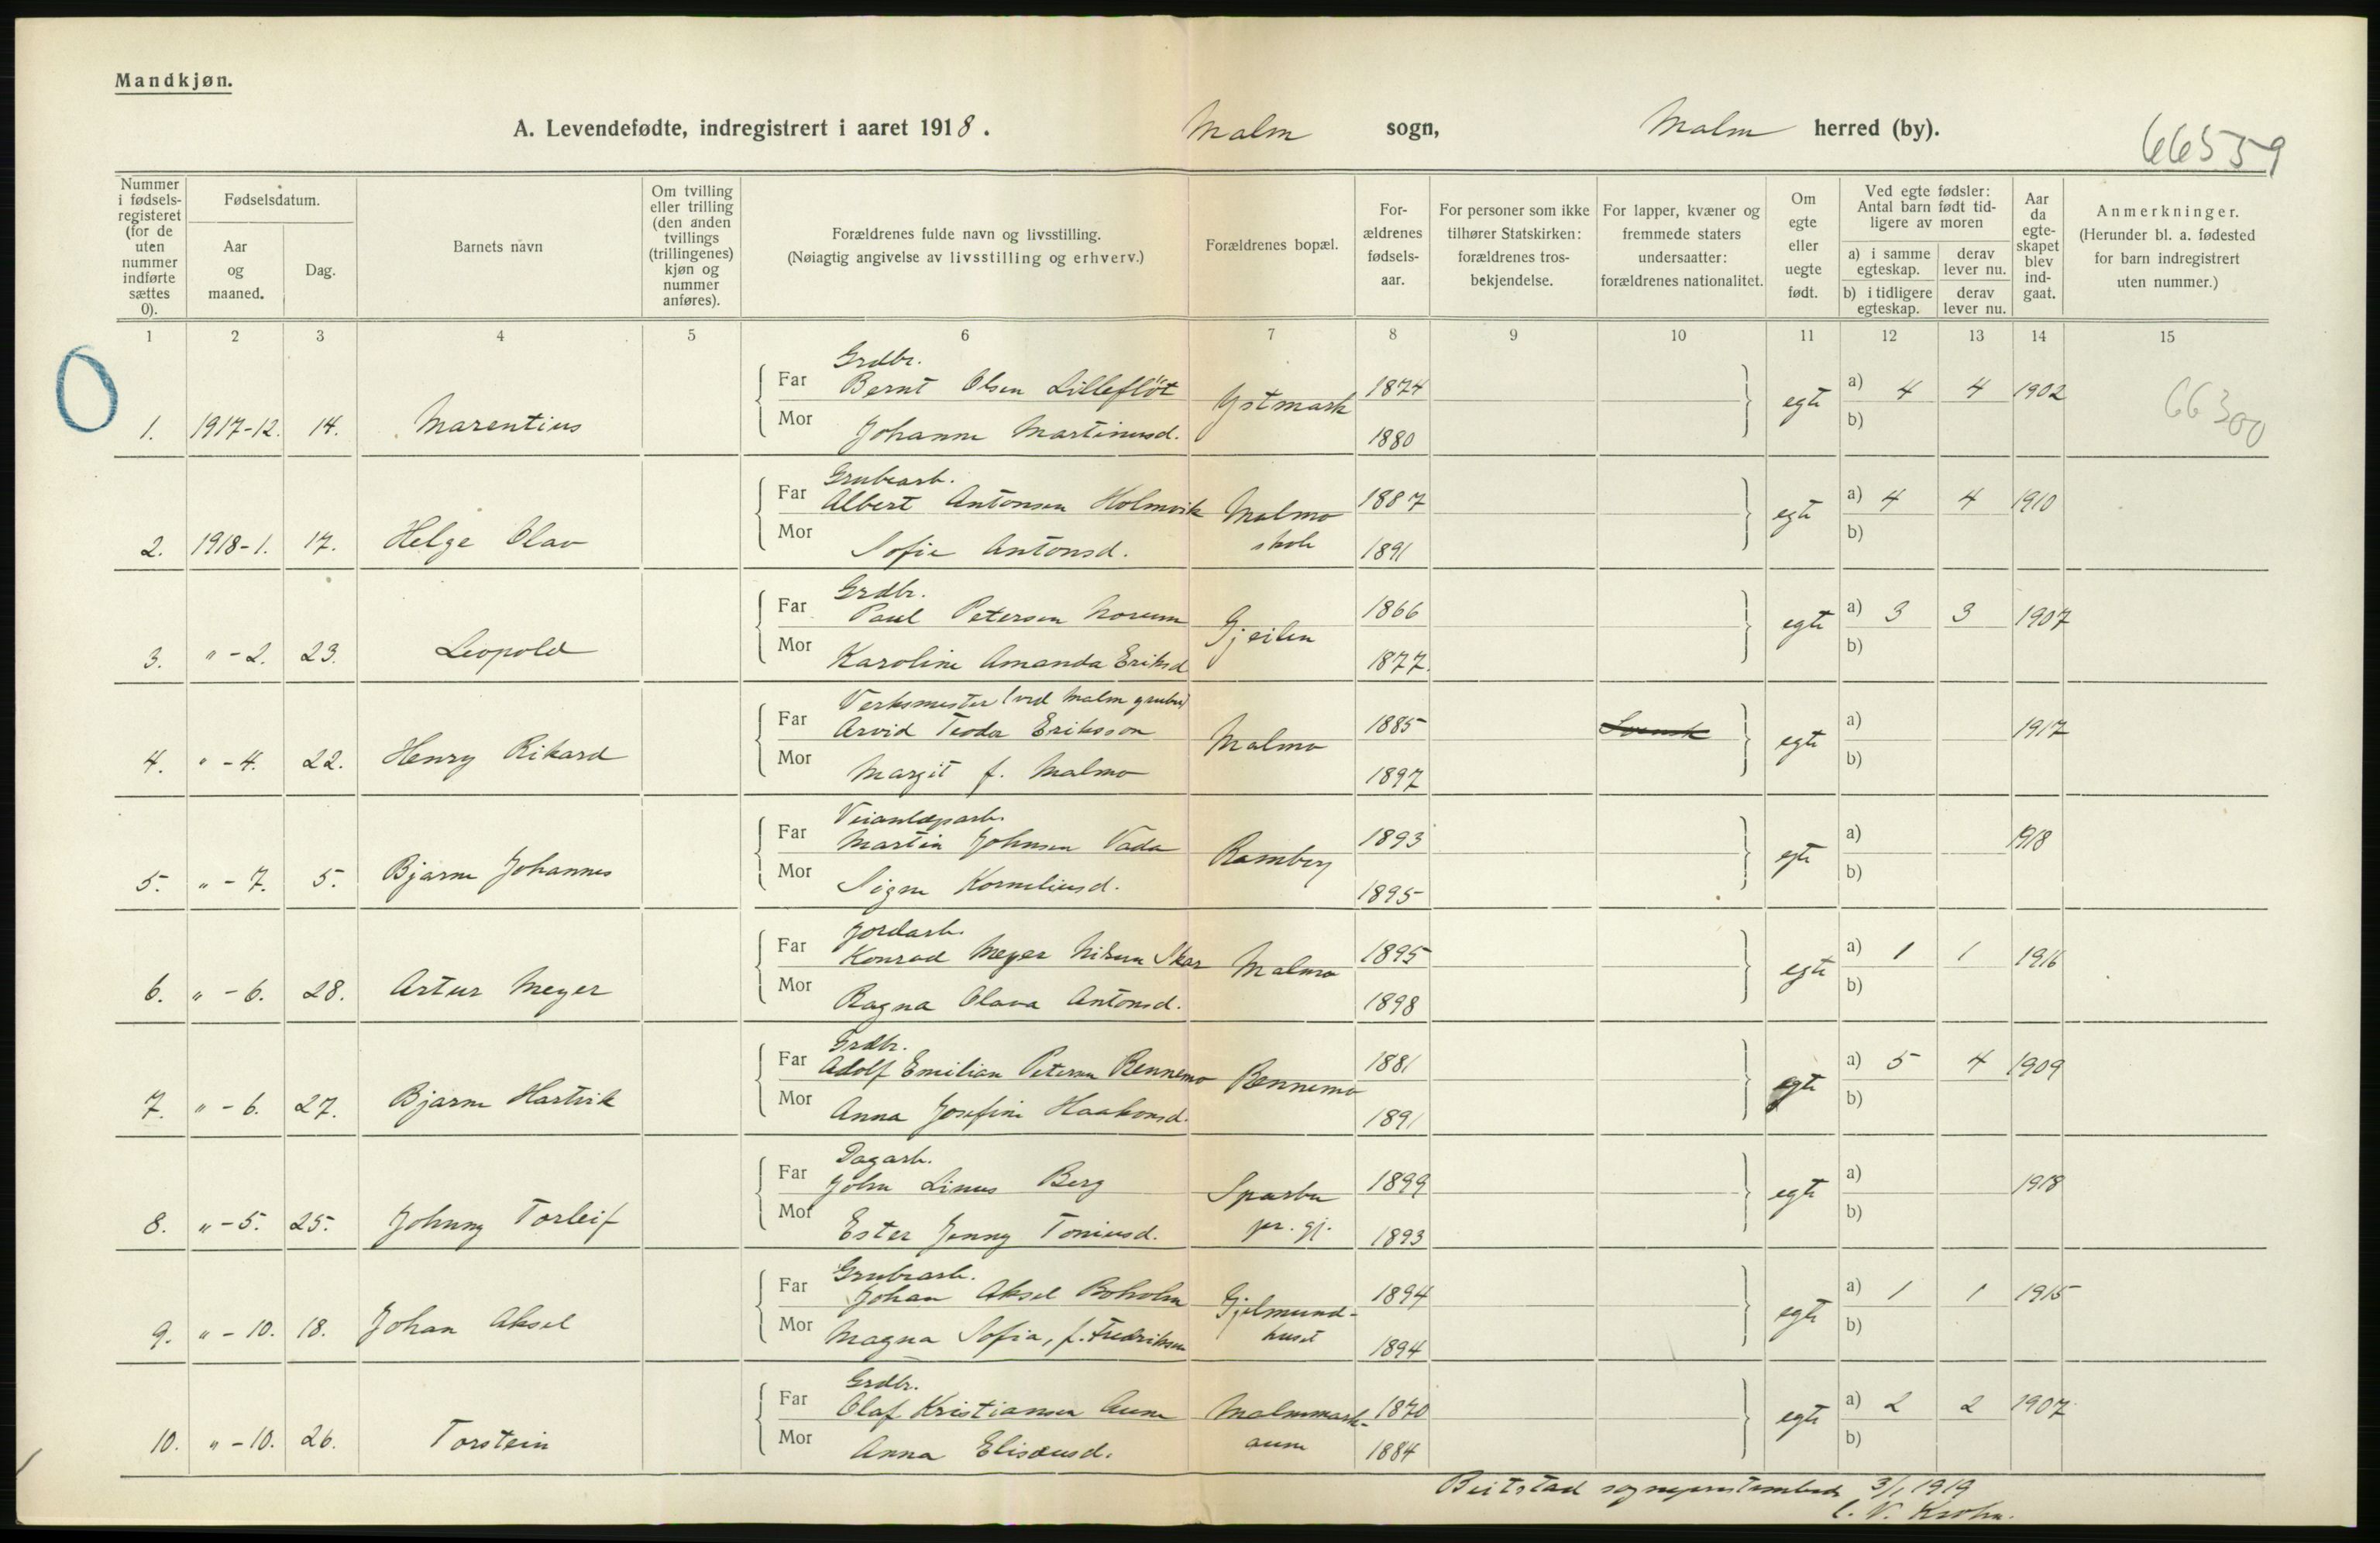 Mandkjøn.
A. Levendefødte, indregistrert i aaret 1918. Malm sogn, Malm herred (by).
66559
Nummer i fødsels-registeret (for de uten nummer indførte sættes 0).
Fødselsdatum.
Aar og maaned.
Dag.
Barnets navn
Om tvilling eller trilling (den anden tvillings (trillingenes) kjøn og nummer anføres).
Forældrenes fulde navn og livsstilling.
(Nøiagtig angivelse av livsstilling og erhverv.)
Forældrenes bopæl.
For-ældrenes fødsels-aar.
For personer som ikke tilhører Statskirken: forældrenes tros-bekjendelse.
For lapper, kvæner og fremmede staters undersaatter: forældrenes nationalitet.
Om egte eller uegte født.
Ved egte fødsler: Antal barn født tid-ligere av moren
a) i samme egteskap.
derav lever nu.
b) i tidligere egteskap.
derav lever nu.
Aar da egte-skapet blev ind-gaat.
Anmerkninger.
(Herunder bl. a. fødested for barn indregistrert uten nummer.)
1 2 3 4 5 6 7 8 9 10 11 12 13 14 15
0
Grdbr.
Far Bernt Olsen Lilleflöt Ystmark 1874 egte a) 4 4 1902 66300
1. 1917-12. 14. Marentius
Mor Johanne Martinusd. 1880 b)
Grubearb.
Far Albert Antonsen Holmvik Malmo skole 1887 egte a) 4 4 1910
2. 1918-1. 17. Helge Olav
Mor Sofie Antonsd. 1891 b)
Grdbr.
Far Paul Petersen Norum Gjeilen 1866 egte a) 3 3 1907
3. " - 2. 23. Leopold
Mor Karoline Amanda Eriksd 1877. b)
Verksmester (ved Malm gruber)
Far Arvid Teodor Eriksson Malmo 1885 Svensk egte a) 1917
4. " - 4. 22. Henry Rikard
Mor Margit f. Malmo 1897 b)
Veianlægsarb.
Far Martin Johnsen Vada Ramberg 1893 egte a) 1918
5. " - 7. 5. Bjarne Johannes
Mor Signe Korneliusd. 1895 b)
Jordarb.
Far Konrad Meyer Nilsen Skar Malmo 1895 egte a) 1 1 1916
6. " - 6. 28. Artur Meyer
Mor Ragna Olava Antonsd. 1898 b)
Grdbr.
Far Adolf Emilian Petersen Rennemo Rennemo 1881 egte a) 5 4 1909
7. " - 6. 27. Bjarne Hartvik
Mor Anna Josefine Haakonsd. 1891 b)
Dagarb.
Far John Linus Berg Sparbu pr. gj. 1899 egte a) 1918
8. " - 5. 25. Johnny Torleif
Mor Ester Jenny Toniusd. 1893 b)
Grubearb.
Far Johan Aksel Boholm Gjelmund-huset 1894 egte a) 1 1 1915
9. " - 10. 18. Johan Aksel
Mor Magna Sofia, f. Fredriksen 1894 b)
Grdbr.
Far Olaf Kristiansen Aune Malmmark-aune 1870 egte a) 2 2 1907
10. " - 10. 26. Torstein
Mor Anna Elisæusd. 1884 b)
Beitstad sogneprestembede 3/1 1919
C. V. Krohn.